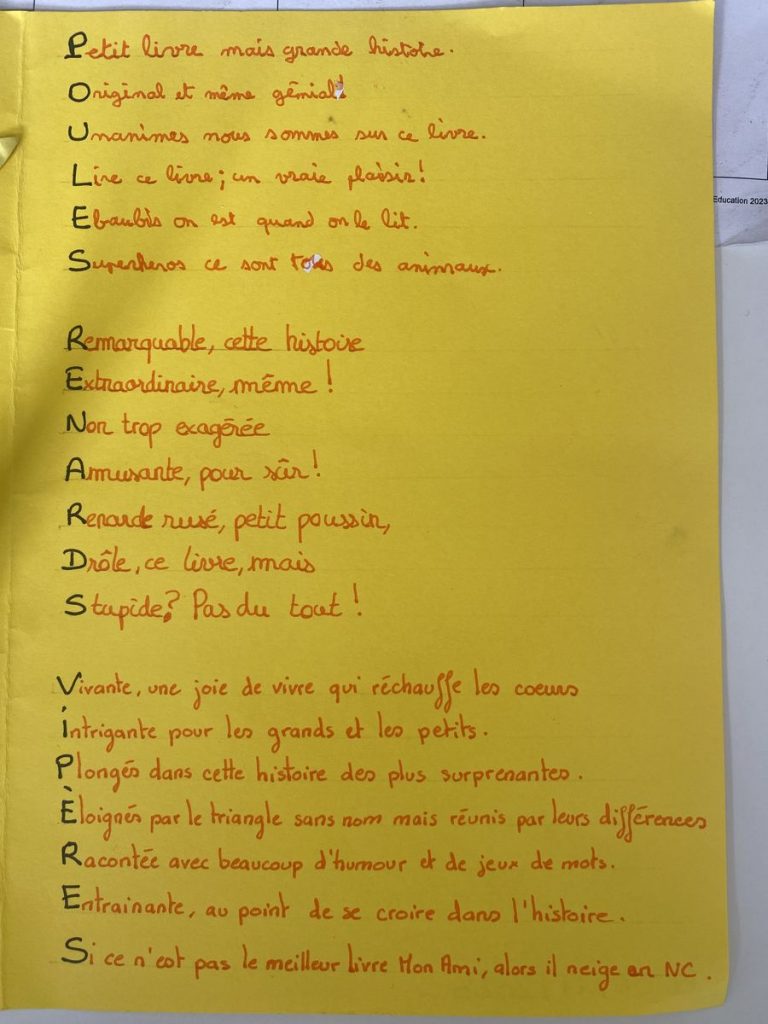 Petit livre mais grande histoire.
Original et même génial!
Unanimes nous sommes sur ce livre.
Education 2023
Lire ce livre; un vraie plaisir!
Ebaubis on est quand on le lit.
Superheros ce sont tous des animaux.
Remarquable, cette histoire
Extraordinaire, même !
Non trop exagérée
Amusante, pour sûr !
Renarde rusé, petit poussin,
Drôle, ce livre, mais
Stupide? Pas du tout !
Vivante, une joie de vivre qui réchauffe les coeurs
Intrigante pour les grands et les petits.
Plongés dans cette histoire des plus surprenantes.
Èloignés par le triangle sans nom mais réunis par leurs différences
Racontée avec beaucoup d'humour et de jeux de mots.
Entrainante, au point de se croire dans l'histoire.
Si ce n'est pas le meilleur livre Mon Ami, alors il neige en NC.